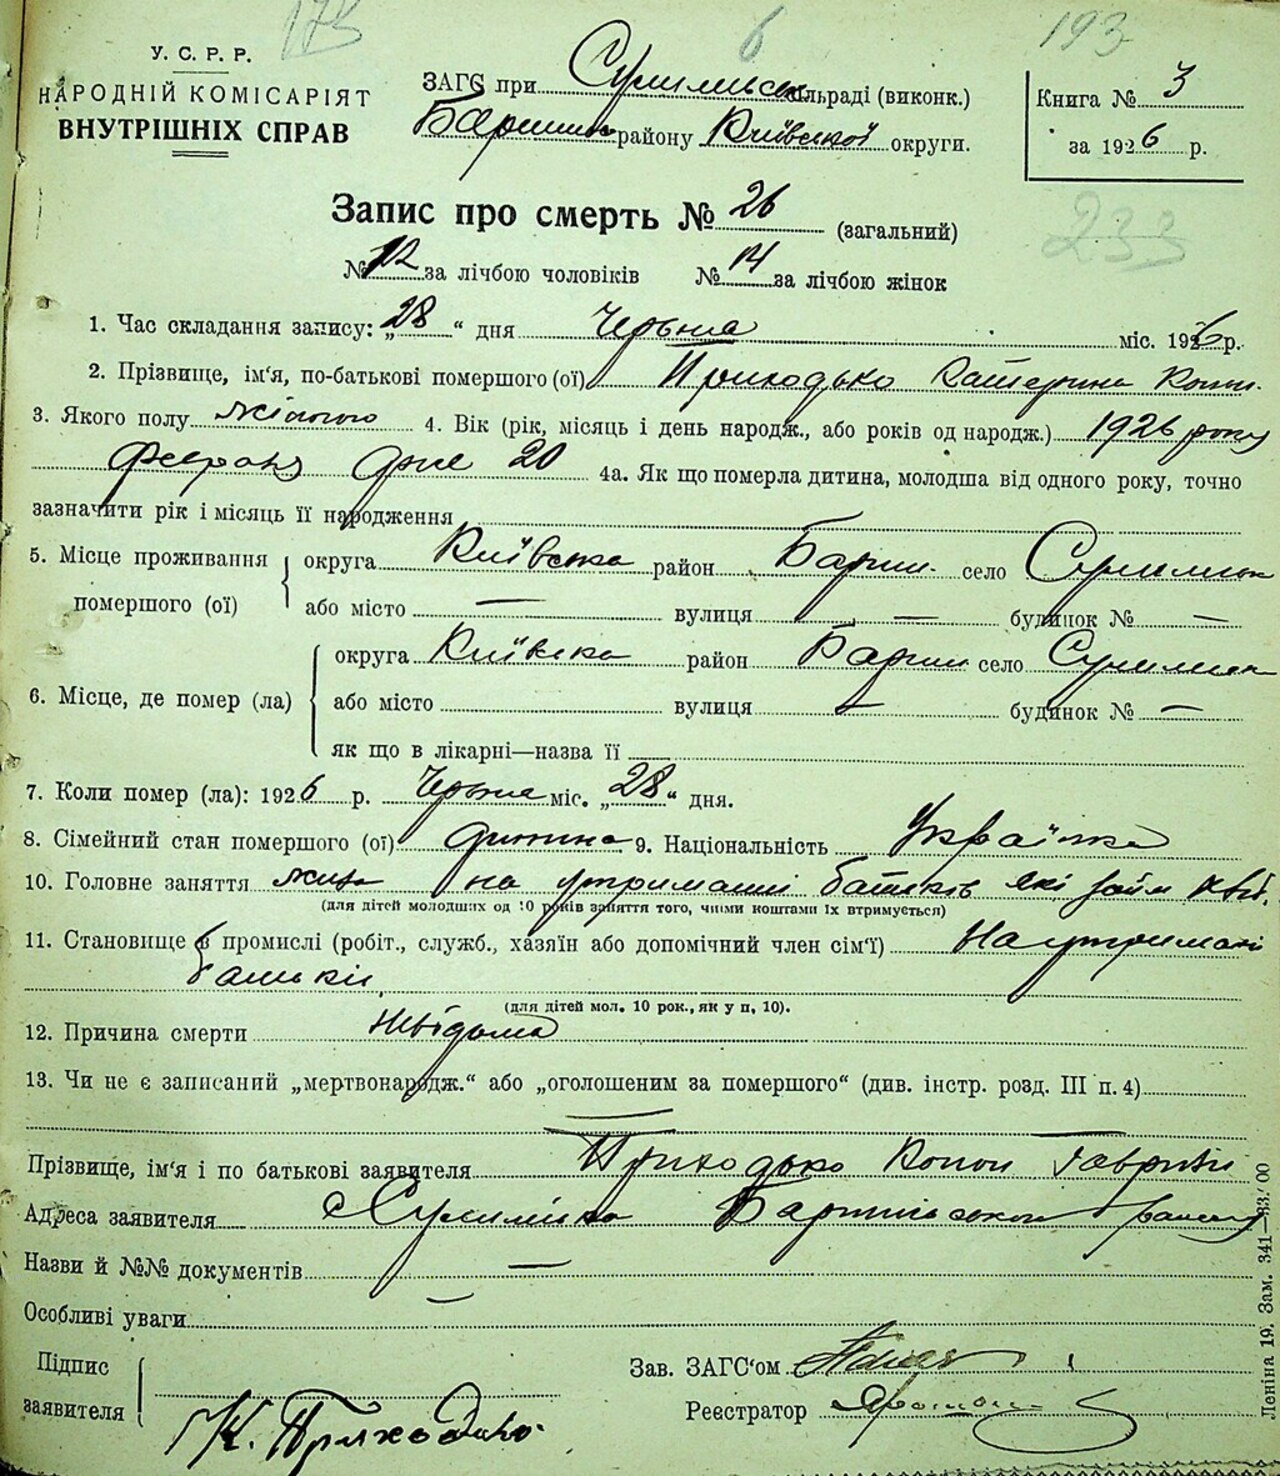 173 6 193
У. С. Р. Р.
НАРОДНІЙ КОМІСАРІЯТ
ВНУТРІШНІХ СПРАВ
ЗАГС при Сулимівськ сільраді (виконк.)
Баришів району Київської округи.
Книга № 3
за 1926 р.
Запис про смерть № 26 (загальний)
233
№ 12 за лічбою чоловіків № 14 за лічбою жінок
1. Час складання запису: „28“ дня Червня міс. 1926 р.
2. Прізвище, ім‘я, по-батькові помершого (ої) Приходько Катерина Конон.
3. Якого полу жіночого 4. Вік (рік, місяць і день народж., або років од народж.) 1926 року
Февраля дня 20 4а. Як що померла дитина, молодша від одного року, точно
зазначити рік і місяць її народження
5. Місце проживання помершого (ої) округа Київська район Бариш. село Сулимівк
або місто — вулиця — будинок № —
6. Місце, де помер (ла) округа Київська район Бариш село Сулимівк
або місто вулиця — будинок № —
як що в лікарні—назва її
7. Коли помер (ла): 1926 р. Червня міс. „28“ дня.
8. Сімейний стан помершого (ої) дитина 9. Національність Українка
10. Головне заняття жила на утриманні батьків які займ хліб.
(для дітей молодших од 10 років заняття того, чиїми коштами їх втримується)
11. Становище в промислі (робіт., служб., хазяїн або допомічний член сім‘ї) На утримані
батьків
(для дітей мол. 10 рок., як у п. 10).
12. Причина смерти Невідома
13. Чи не є записаний „мертвонародж.“ або „оголошеним за помершого“ (див. інстр. розд. III п. 4)
Прізвище, ім‘я і по батькові заявителя Приходько Конон Гаврилов
Адреса заявителя с Сулимівка Баришівського району
Назви й №№ документів —
Особливі уваги —
Підпис заявителя К. Приходько.
Зав. ЗАГС‘ом
Реєстратор
Леніна 19. Зам. 341—33.00